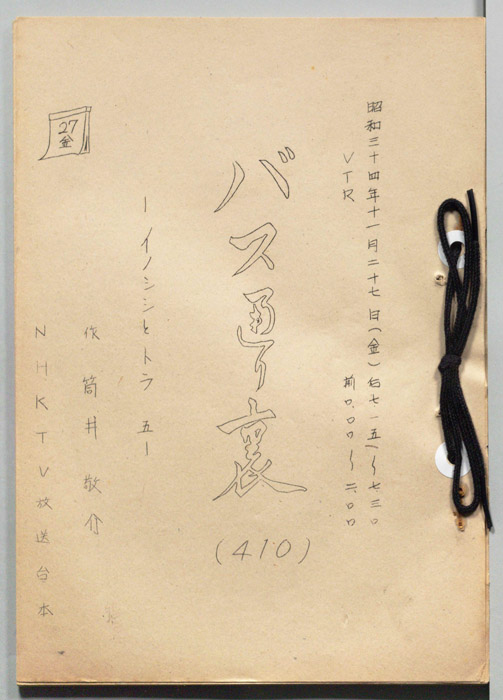 昭和三十四年十一月二十七日(金)后七・一五〜七・三〇
VTR 前
バス通り裏
(410)
—イノシシとトラ 五—
27
金
作 筒井敬介
NHKTV放送台本